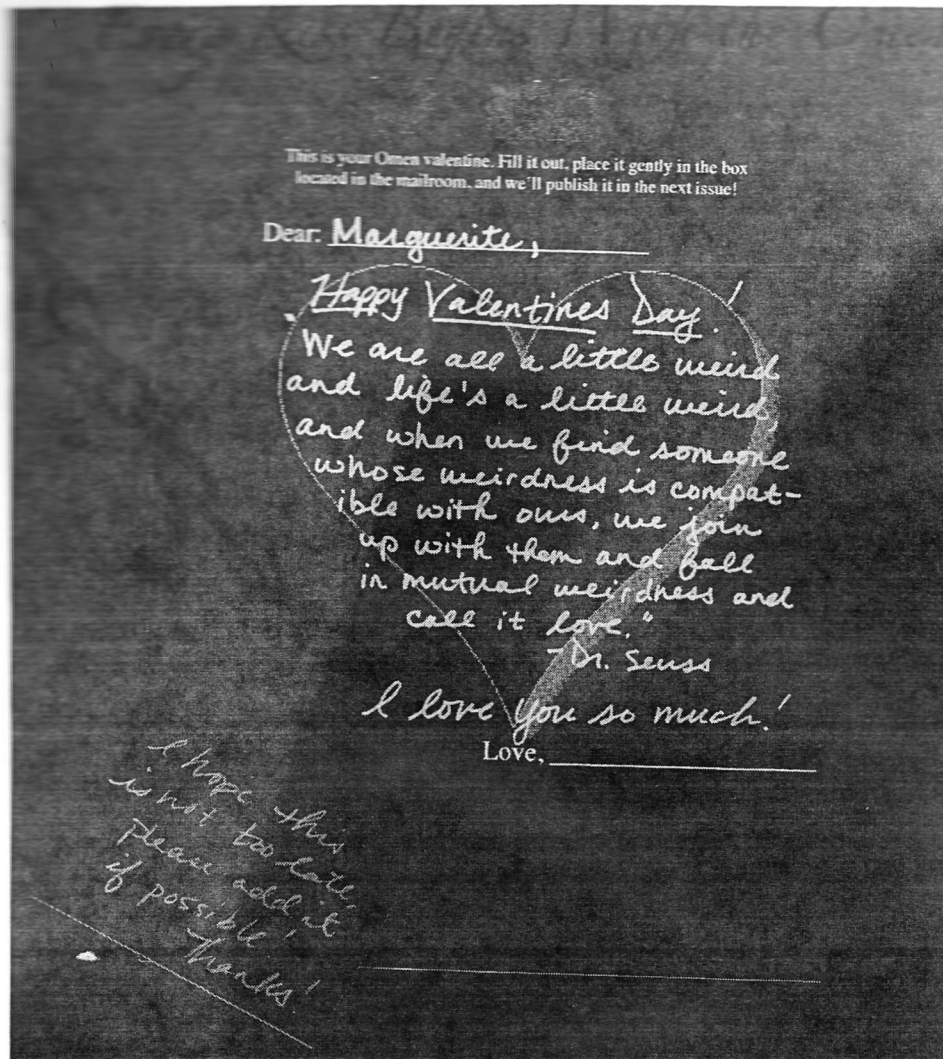 This is your Omen valentine. Fill it out, place it gently in the box
located in the mailroom, and we'll publish it in the next issue!
Dear: Marguerite,
Happy Valentines Day!
We are all a little weird
and life's a little weird,
and when we find someone
whose weirdness is compat-
ible with ours, we join
up with them and fall
in mutual weirdness and
call it love."
-Dr. Seuss
I love you so much!
Love,
I hope this
is not too late,
please add it
if possible!
Thanks!